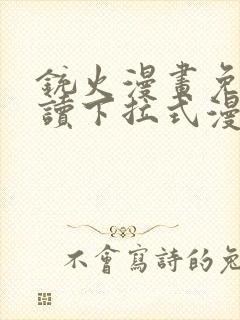 銃火漫畫免
讀下拉式漫
不會寫詩的兔